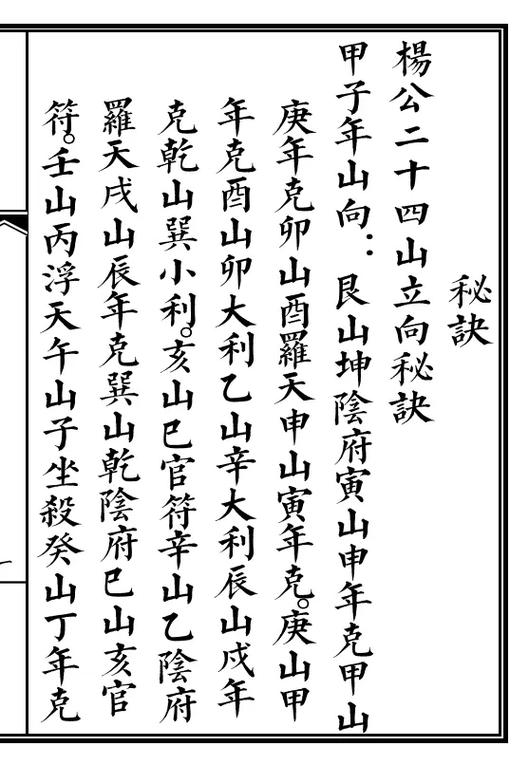 秘訣
楊公二十四山立向秘訣
甲子年山向：艮山坤陰府寅山申年克甲山
庚年克卯山酉羅天申山寅年克。庚山甲
年克酉山卯大利乙山辛大利辰山戌年
克乾山巽小利。亥山巳官符辛山乙陰府
羅天戌山辰年克巽山乾陰府巳山亥官
符。壬山丙浮天午山子坐殺癸山丁年克